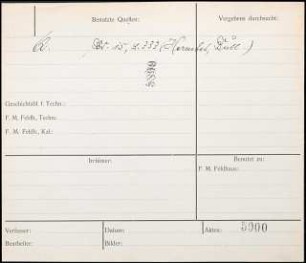 Benutzte Quellen:
Vergebens durchsucht:
Bl. 15,
5899
Geschichtsbl. f. Techn.:
F. M. Feldh, Techn:
F. M. Feldh, Kal:
Irrtümer:
Benutzt zu:
F. M. Feldhaus:
Verfasser:
Datum:
Akten:
5900
Bearbeiter:
Bilder: